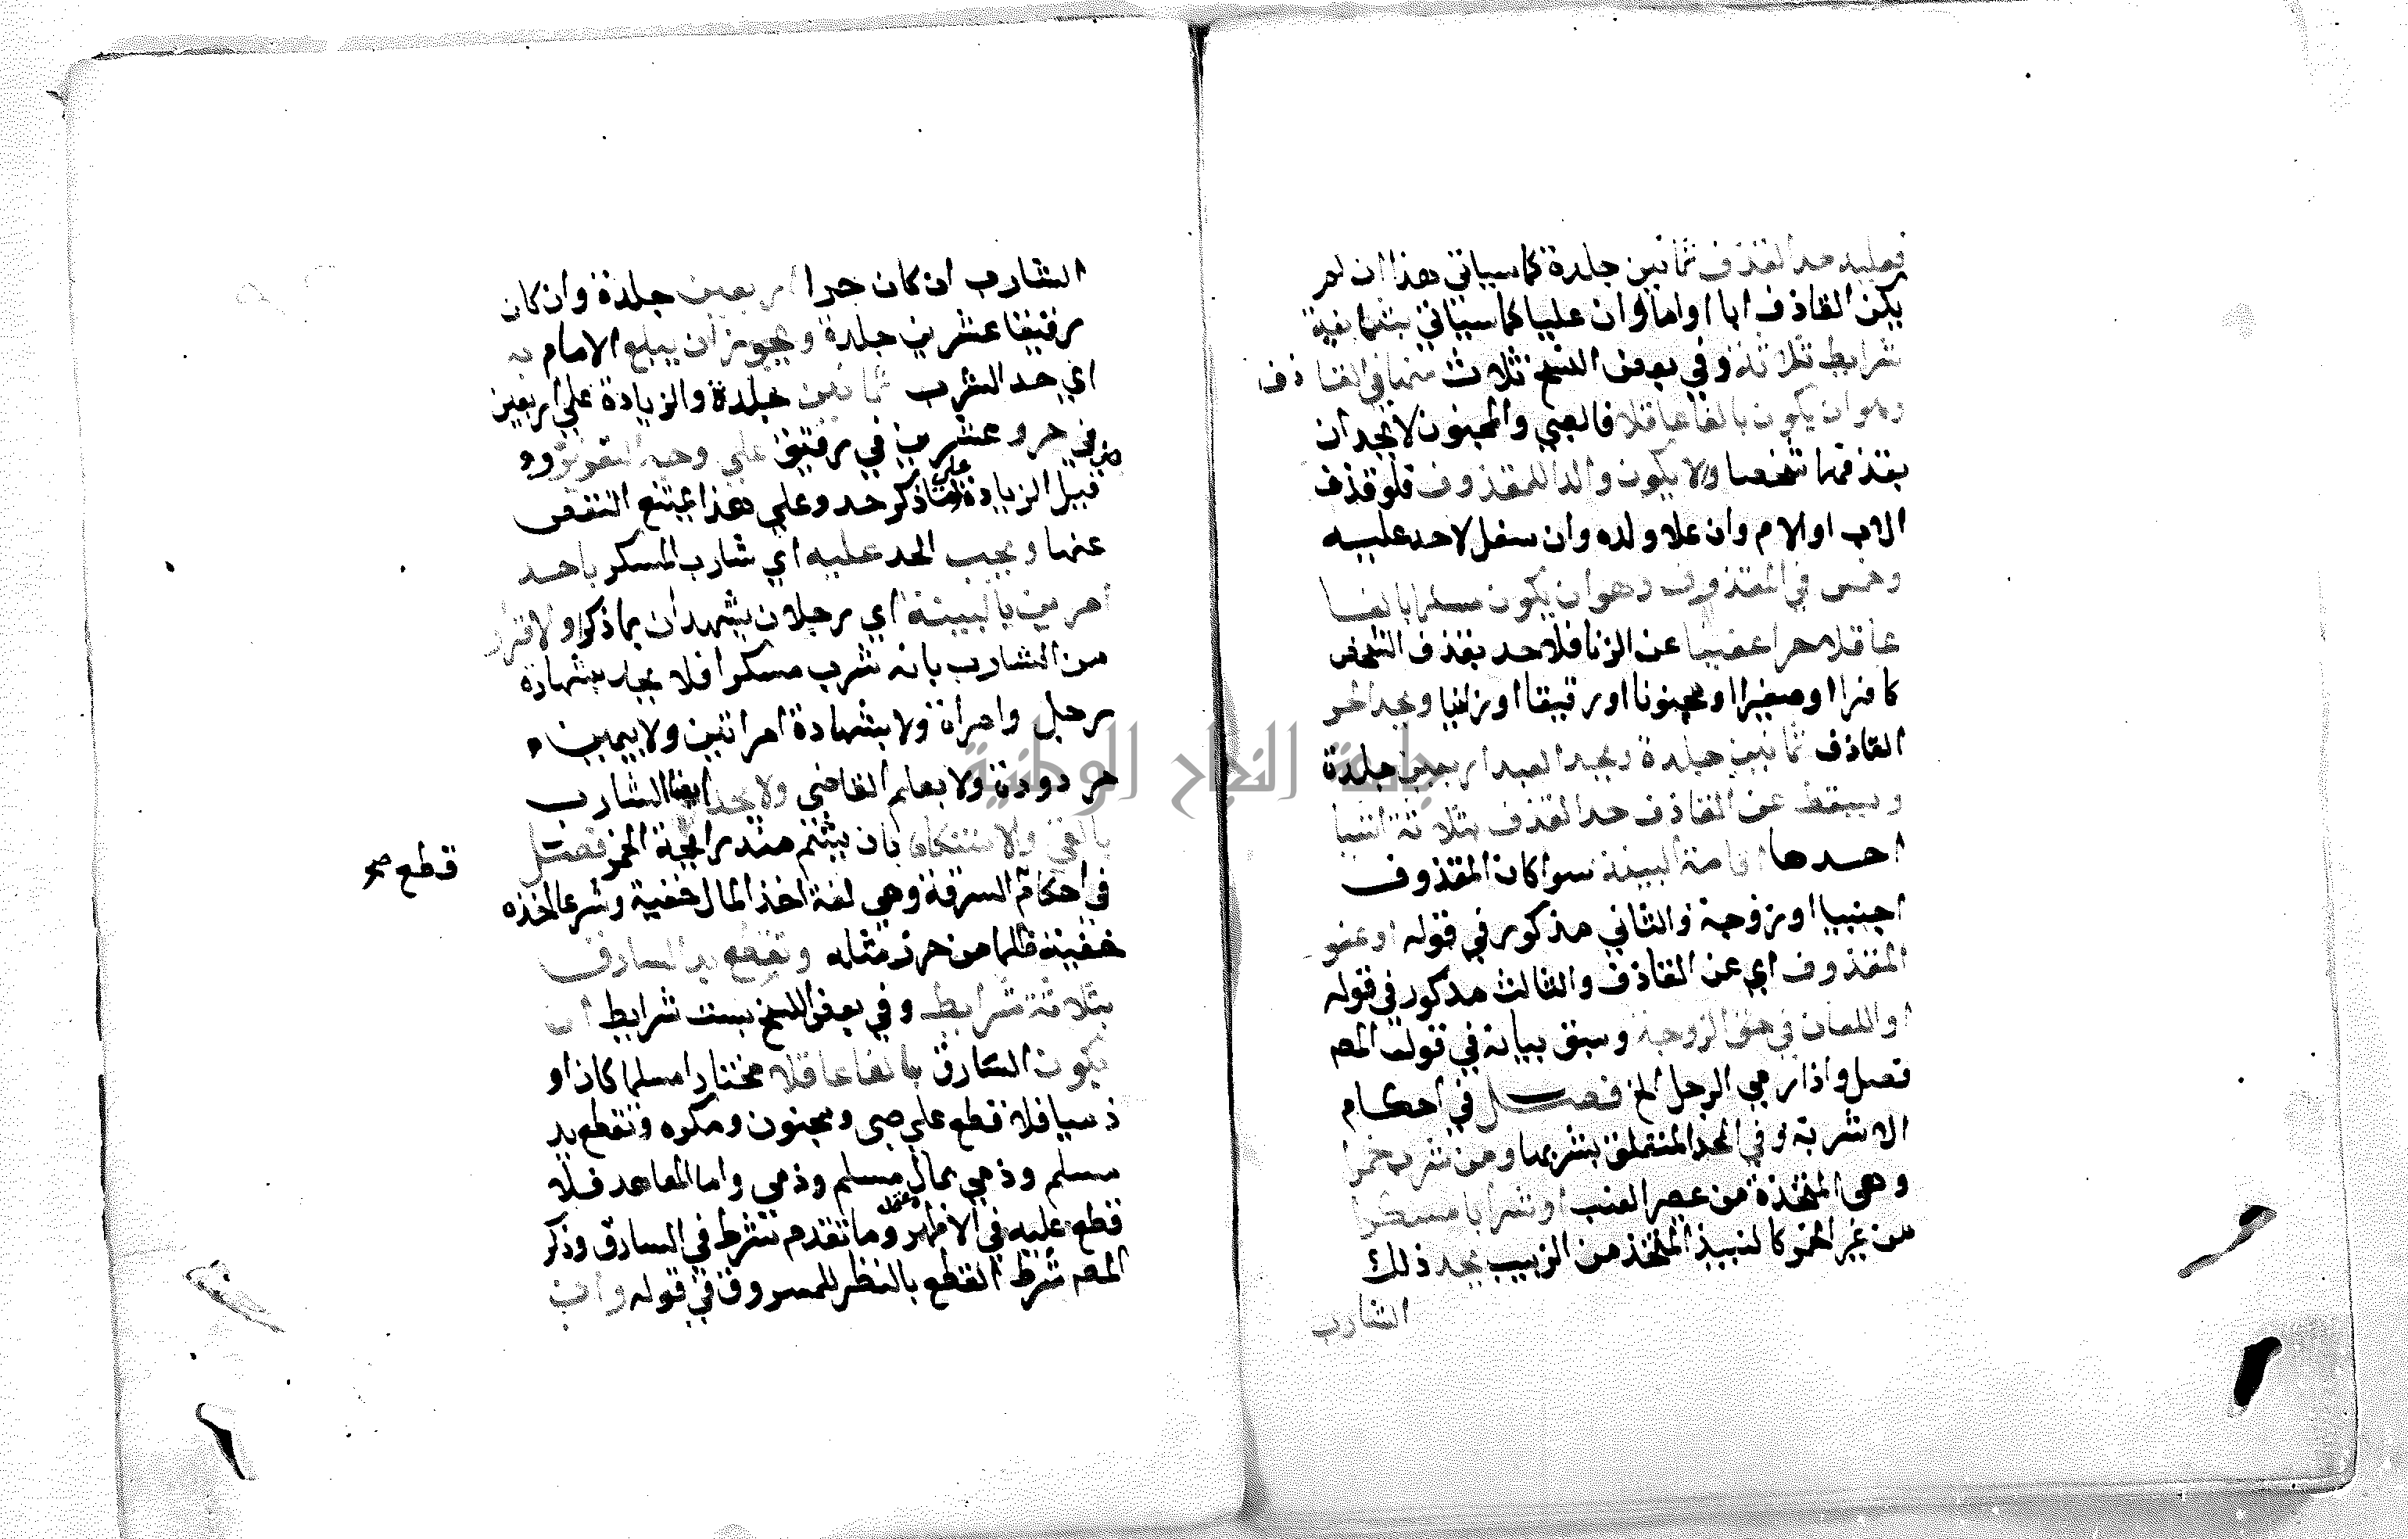 فعليه حد القذف ثمانين جلدة كما سياتي هذا ان لم
يكن القاذف ابا او اما وان عليا كما سياتي بثمانية
شرايط ثلاثة وفي بعض النسخ ثلاث منها في القاذف
وهو ان يكون بالغا عاقلا فالصبي والمجنون لا يحدان
بقذفهما شخصا ولا يكون والدا للمقذوف فلو قذف
الاب او الام وان علا ولده وان سفل لا حد عليه
وخمس في المقذوف وهو ان يكون مسلما بالغا
عاقلا حرا عفيفا عن الزنا فلا حد بقذف الشخص
كافرا او صغيرا او مجنونا او رقيقا او زانيا ويحد الحر
القاذف ثمانين جلدة ويحد العبد اربعين جلدة
ويسقط عن القاذف حد القذف بثلاثة اشيا
احدها اقامة البينة سوا كان المقذوف
اجنبيا او زوجة والثاني مذكور في قوله او عفو
المقذوف اي عن القاذف والثالث مذكور في قوله
او اللعان في حق الزوجة وسبق بيانه في قول المصـ
فصل واذا رمي الرجل الخ فصل في احكام
الاشربة وفي الحد المتعلق بشربها ومن شرب خمرا
وهي المتخذة من عصير العنب او شرابا مسكرا
من غير الخمر كالنبيذ المتخذ من الزبيب يحد ذلك
الشارب
الشارب ان كان حرا اربعين جلدة وان كان
رقيقا عشرين جلدة ويجوز ان يبلغ الامام به
اي حد الشرب ثمانين جلدة والزيادة علي اربعين
في حر وعشرين في رقيق علي وجه التعزير و
قيل الزيادة علي ما ذكر حد وعلي هذا يمتنع النقص
عنها ويجب الحد عليه اي شارب المسكر باحد
امرين بالبينة اي رجلان يشهدان بما ذكر او الاقرار
من الشارب بانه شرب مسكرا فلا يحد بشهادة
رجل وامراة ولا بشهادة امراتين ولا بيمين
مردودة ولا بعلم القاضي ولا يحد ايضا الشارب
بالقي والاستنكاه بان يشم منه رايحة الخمر فصل
في احكام السرقة وهي لغة اخذ المال خفية وشرعا اخذه
قطع صح
خفية ظلما من حرز مثله وتقطع يد السارق
بثلاثة شرايط وفي بعض النسخ بست شرايط ان
يكون السارق بالغا عاقلا مختارا مسلما كان او
ذميا فلا قطع علي صبي ومجنون ومكره وتقطع يد
مسلم وذمي بمال مسلم وذمي واما المعاهد فلا
قطع عليه في الاظهر وما تقدم شرط في السارق وذكر
المصـ شرط القطع بالنظر للمسروق في قوله وان